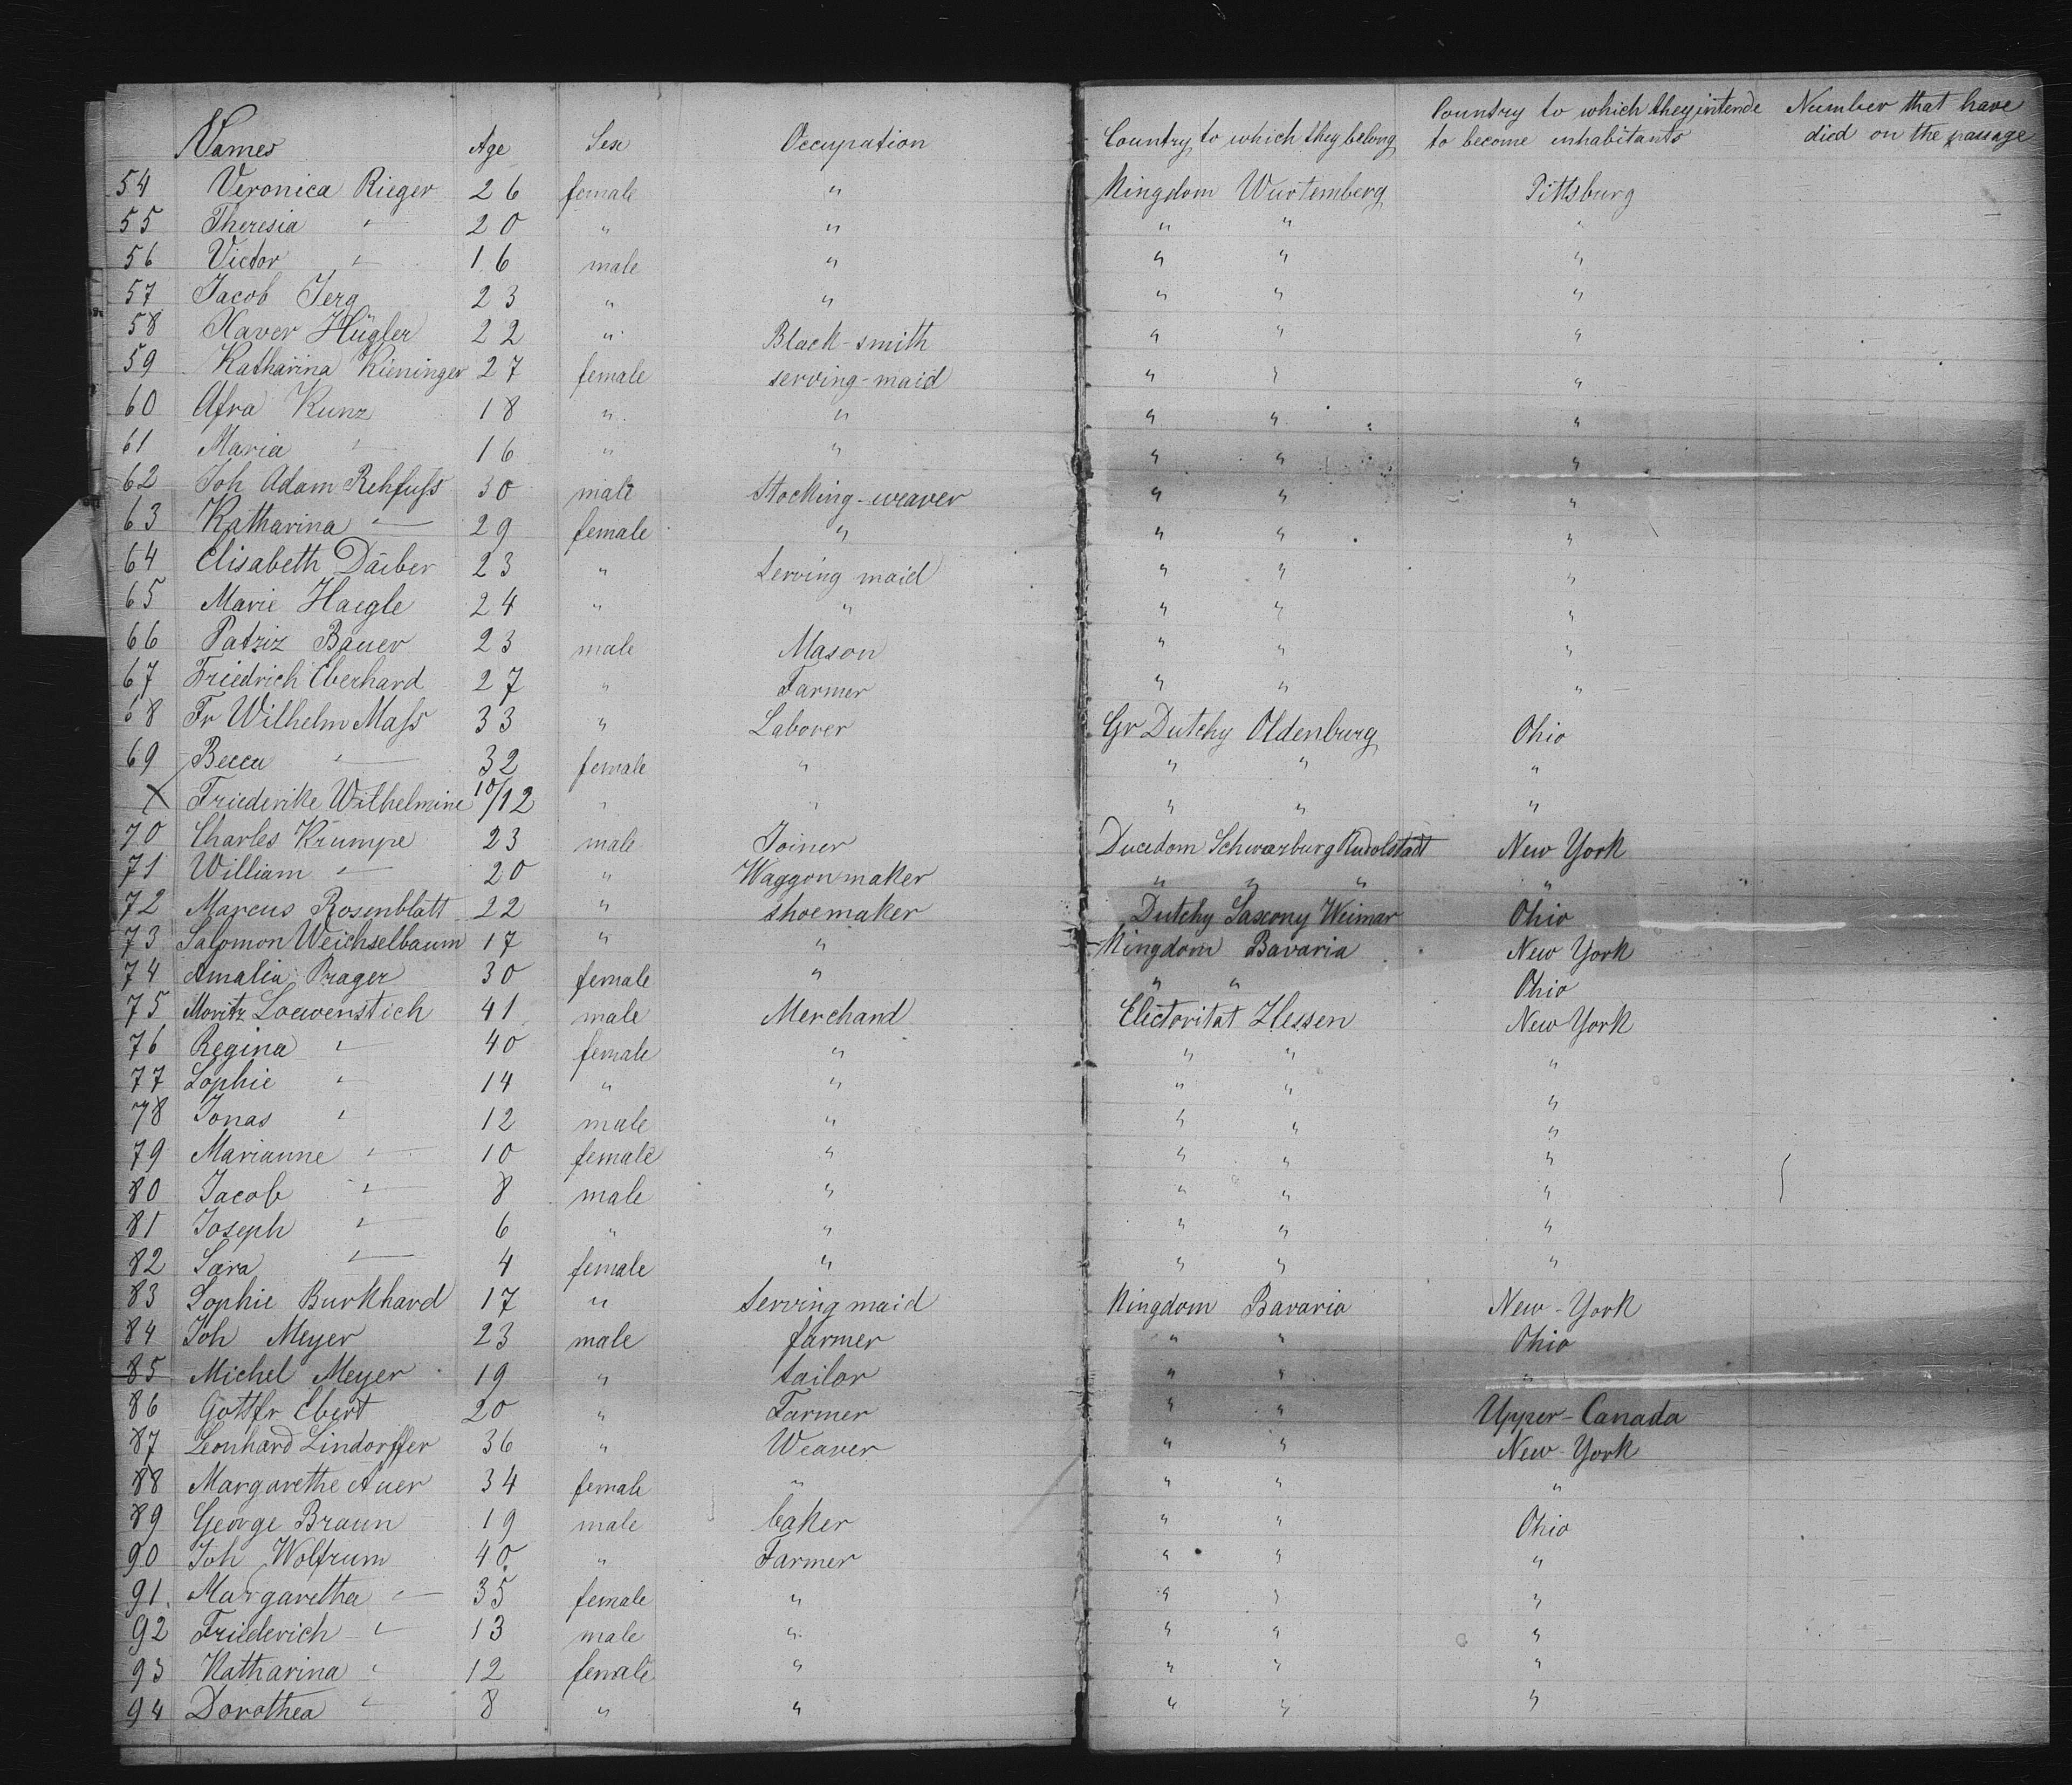 Names Age Sex Occupation Country to which they belong Country to which they intende to become inhabitants Number that have died on the passage
54 Veronica Rieger 26 female " Kingdom Wurtemberg Pittsburg
55 Theresia " 20 " " " " "
56 Victor " 16 male " " " "
57 Jacob Jerg 23 " " " " "
58 Xaver Hügler 22 " Black-smith " " "
59 Katharina Kieninger 27 female serving-maid " " "
60 Afra Kunz 18 " " " " "
61 Maria " 16 " " " " "
62 Joh Adam Rehfuss 30 male Stocking-weaver " " "
63 Katharina " 29 female " " " "
64 Elisabeth Däiber 23 " Serving maid " " "
65 Marie Haegle 24 " " " " "
66 Patriz Bauer 23 male Mason " " "
67 Friedrich Eberhard 27 " Farmer " " "
68 Fr Wilhelm Mass 33 " Laborer Gr Dutchy Oldenburg Ohio
69 Becca " 32 female " " " "
X Friederike Wilhelmine 10/12 " " " " "
70 Charles Krumpe 23 male Joiner Ducedom Schwarzburg Rudolstadt New York
71 William " 20 " Waggonmaker " " " "
72 Marcus Rosenblatt 22 " Shoemaker Dutchy Saxony Weimar Ohio
73 Salomon Weichselbaum 17 " " Kingdom Bavaria New York
74 Amalia Prager 30 female " " " Ohio
75 Moritz Loewenstich 41 male Merchand Electoritat Hessen New York
76 Regina " 40 female " " " "
77 Sophie " 14 " " " " "
78 Jonas " 12 male " " " "
79 Marianne " 10 female " " " "
80 Jacob " 8 male " " " "
81 Joseph " 6 " " " " "
82 Sara " 4 female " " " "
83 Sophie Burkhard 17 " Serving maid Kingdom Bavaria New-York
84 Joh Meyer 23 male farmer " " Ohio
85 Michel Meyer 19 " tailor " " "
86 Gottfr Ebert 20 " Farmer " " Upper-Canada
87 Leonhard Lindorffer 36 " Weaver " " New-York
88 Margarethe Auer 34 female " " " "
89 George Braun 19 male baker " " Ohio
90 Joh Wolfrum 40 " Farmer " " "
91. Margaretha " 35 female " " " "
92 Friederich " 13 male " " " "
93 Katharina " 12 female " " " "
94 Dorothea " 8 " " " " "